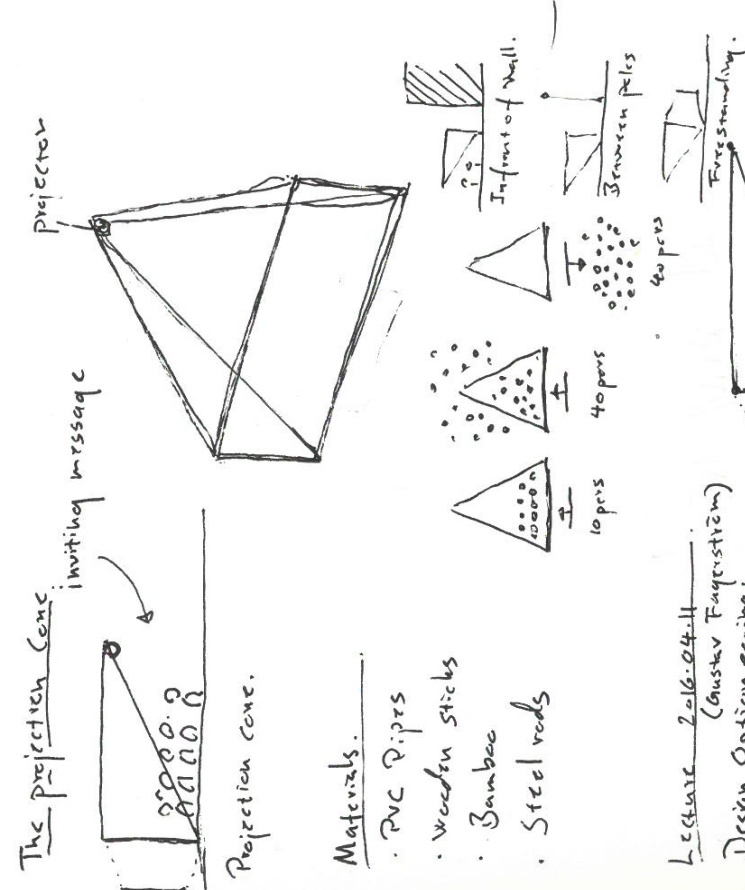 The projection Cone
inviting message
projector
Projection cone.
Materials.
· PVC Pipes
· Wooden Sticks
· Bamboo
· Steel rods
10 pers
40 pers
40 pers
Infront of wall.
Between poles
Freestanding.
Lecture 2016.04.11
(Gustav Fagerström)
Design Optioneering.